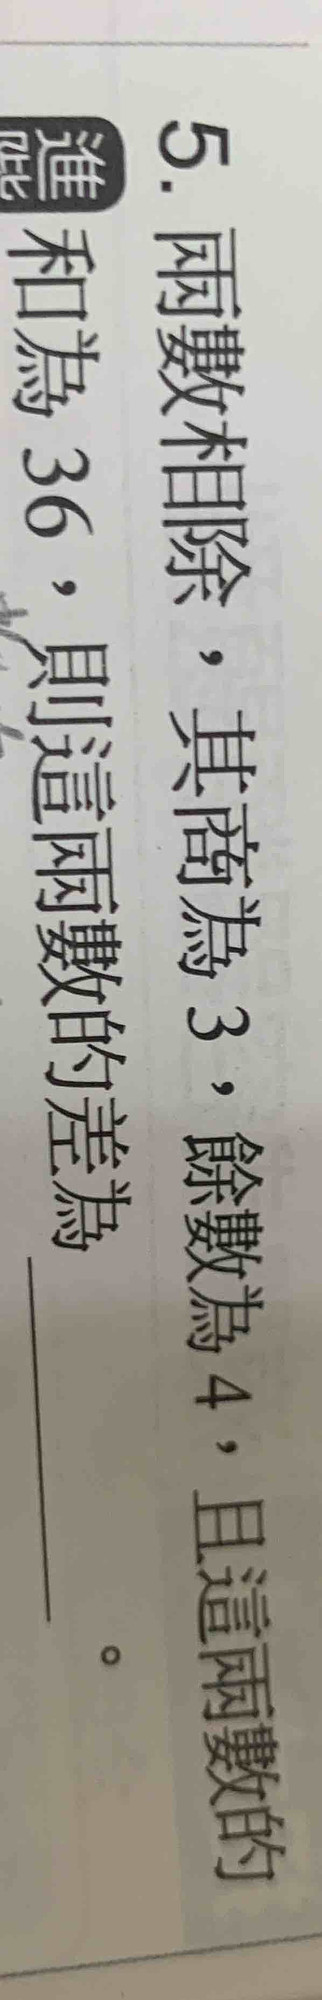 5. 兩數相除，其商為 3，餘數為 4，且這兩數的
進階 和為 36，則這兩數的差為＿＿＿＿。